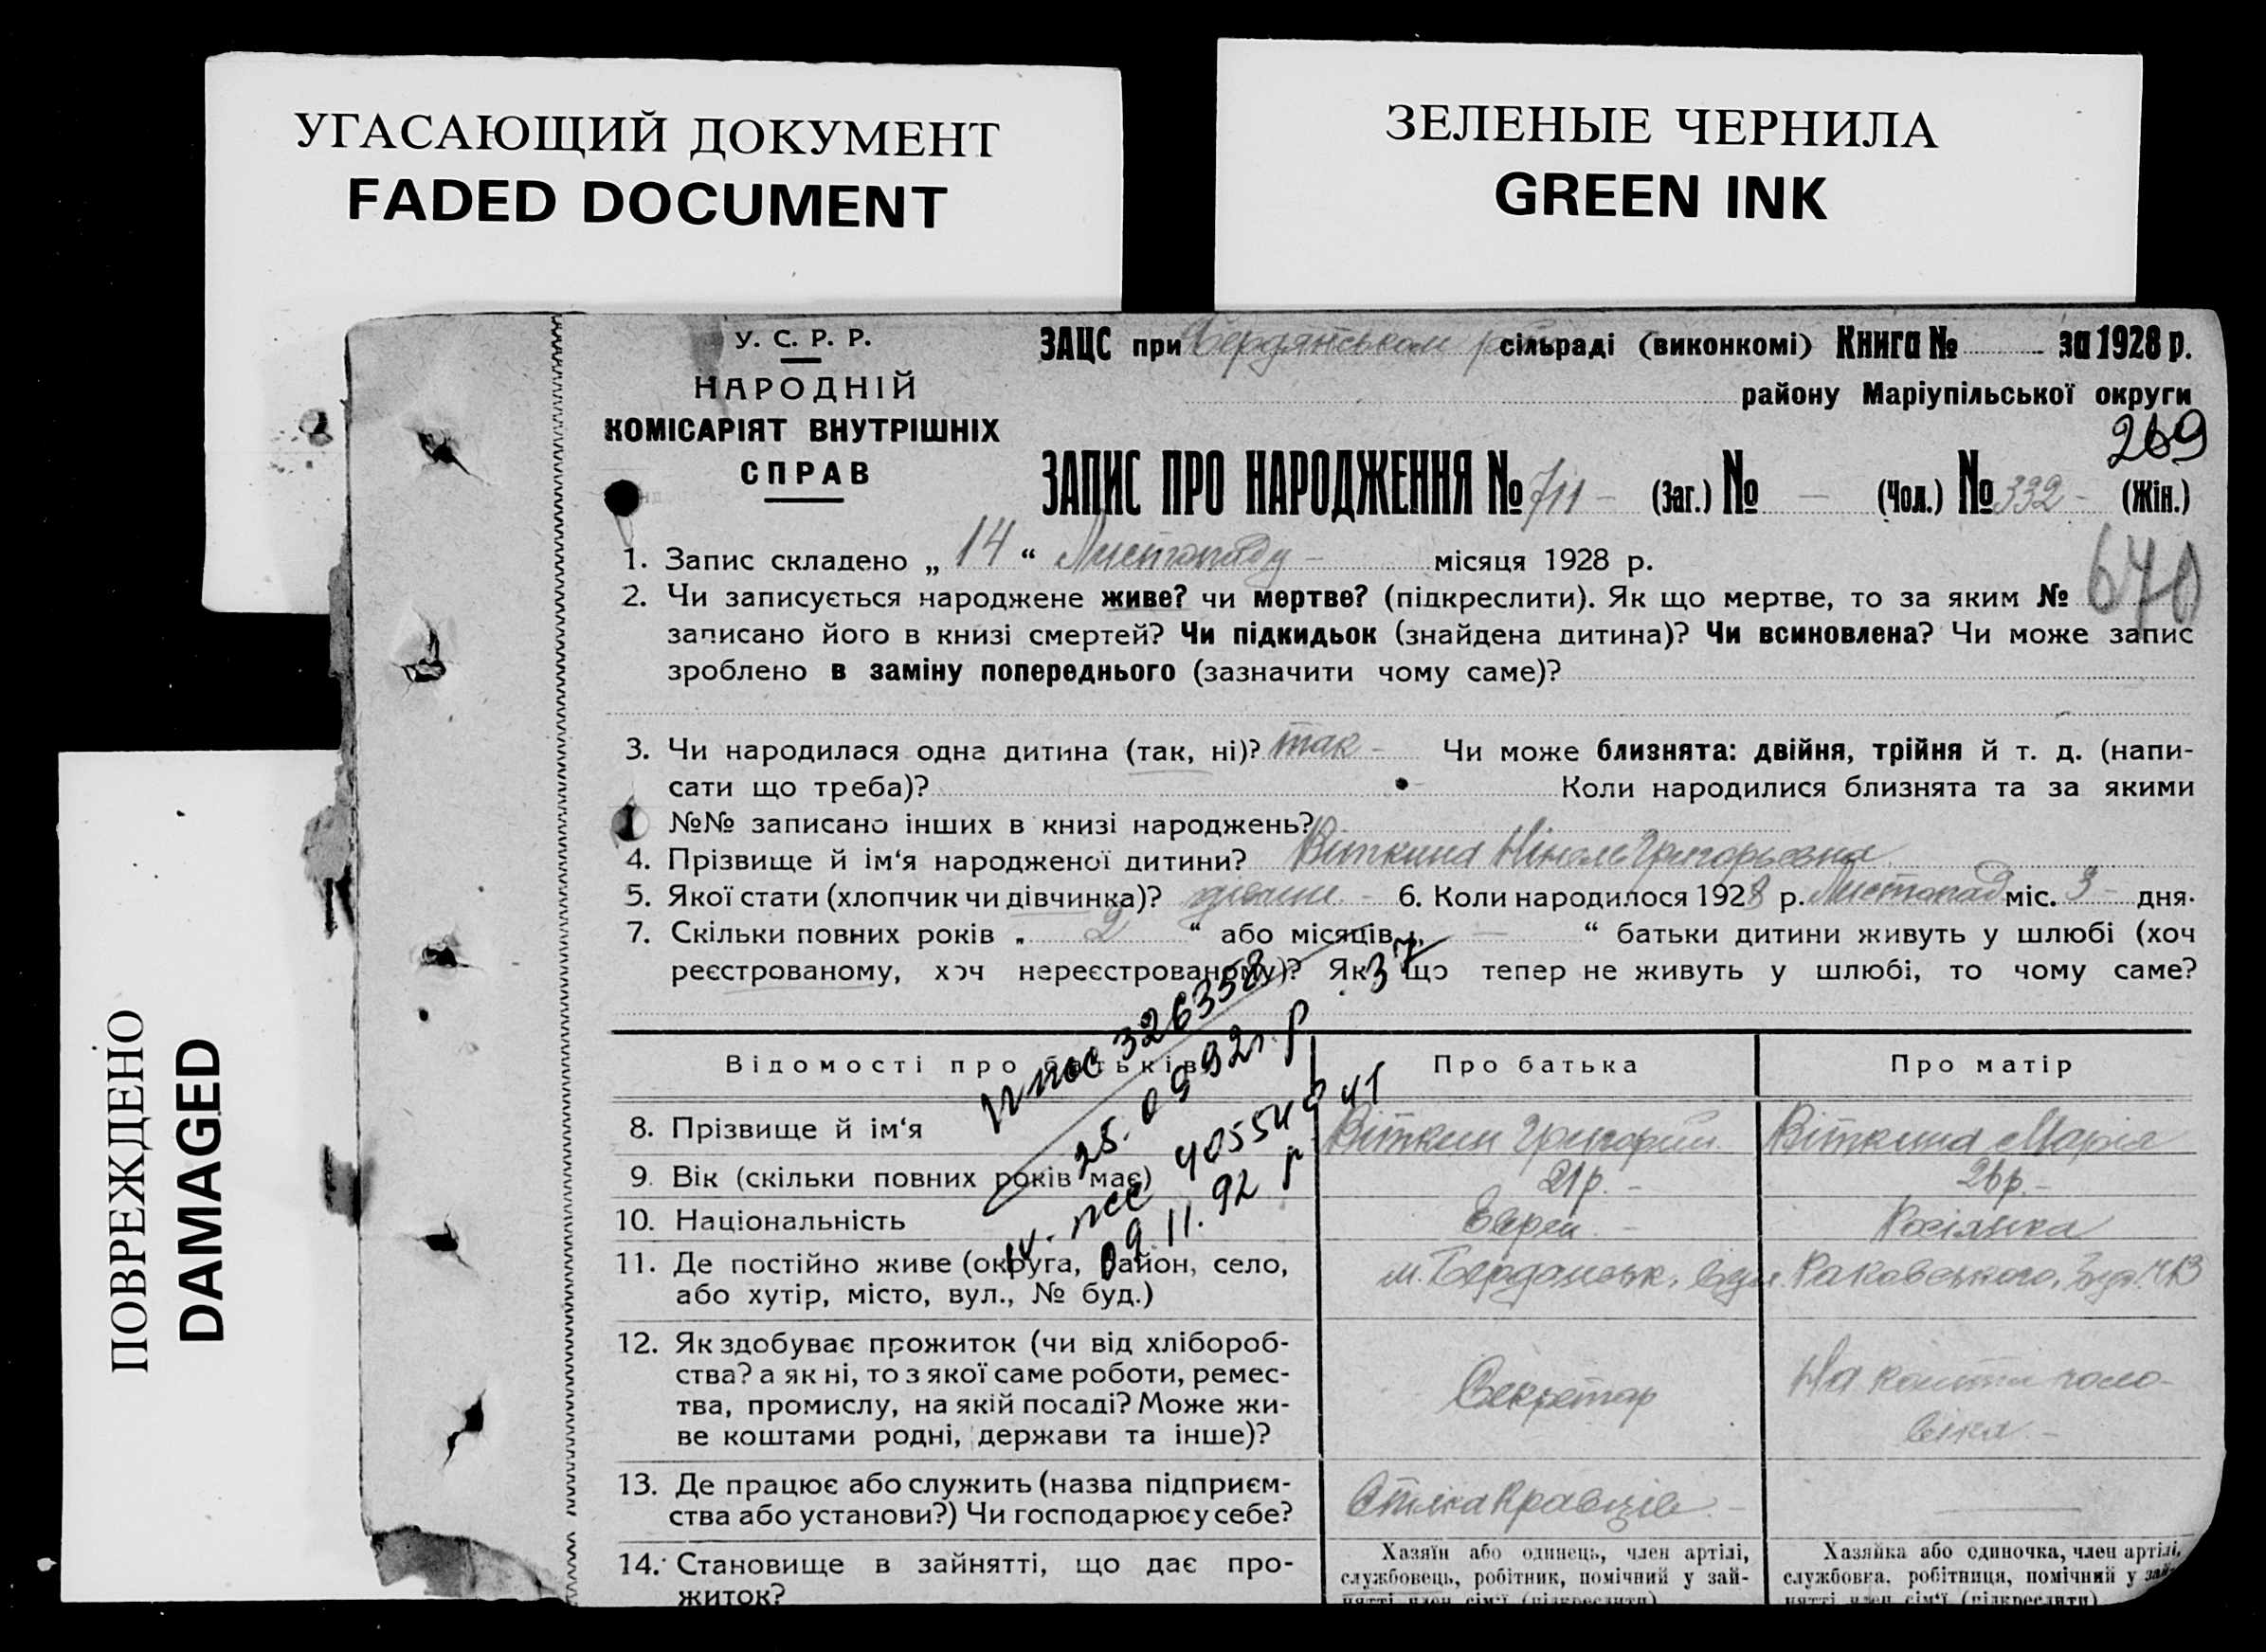 УГАСАЮЩИЙ ДОКУМЕНТ
FADED DOCUMENT
ЗЕЛЕНЫЕ ЧЕРНИЛА
GREEN INK
ПОВРЕЖДЕНО
DAMAGED
У. С. Р. Р.
НАРОДНІЙ
КОМІСАРІЯТ ВНУТРІШНІХ
СПРАВ
ЗАЦС при Бердянськом сільраді (виконкомі) Книга № за 1928 р.
району Маріупільської округи
269
ЗАПИС ПРО НАРОДЖЕННЯ № 711 - (Заг.) № - (Чол.) № 332 - (Жін.)
640
1. Запис складено „ 14 “ Листопаду - місяця 1928 р.
2. Чи записується народжене живе? чи мертве? (підкреслити). Як що мертве, то за яким №
записано його в книзі смертей? Чи підкидьок (знайдена дитина)? Чи всиновлена? Чи може запис
зроблено в заміну попереднього (зазначити чому саме)?
3. Чи народилася одна дитина (так, ні)? так - Чи може близнята: двійня, трійня й т. д. (напи-
сати що треба)? Коли народилися близнята та за якими
№№ записано інших в книзі народжень?
4. Прізвище й ім‘я народженої дитини? Віткина Нінель Григорьевна
5. Якої стати (хлопчик чи дівчинка)? 6. Коли народилося 1928 р. Листопад міс. 3 - дня.
7. Скільки повних років „ 2 “ або місяців „ — “ батьки дитини живуть у шлюбі (хоч
реєстрованому, хоч нереєстрованому)? Як що тепер не живуть у шлюбі, то чому саме?
326358 37
25.09 92г. р
405549 41
09.11.92 р
Відомості про батьків
Про батька
Про матір
8. Прізвище й ім‘я
Віткин Григорий
Віткина Марія
9. Вік (скільки повних років має)
21р. -
26р. -
10. Національність
Еврей -
Росіянка
11. Де постійно живе (округа, район, село,
або хутір, місто, вул., № буд.)
м. Бердянськ, вул. Раковського,
12. Як здобуває прожиток (чи від хлібороб-
ства? а як ні, то з якої саме роботи, ремес-
тва, промислу, на якій посаді? Може жи-
ве коштами родні, держави та інше)?
Секретар
На кошти чоло-
віка. -
13. Де працює або служить (назва підприєм-
ства або установи?) Чи господарює у себе?
Спілка Кравців -
14. Становище в зайнятті, що дає про-
житок?
Хазяїн або одинець, член артілі,
службовець, робітник, помічний у зай-
нятті член сім‘ї (підкреслити)
Хазяйка або одиночка, член артілі,
службовка, робітниця, помічний у зай-
нятті член сім‘ї (підкреслити)